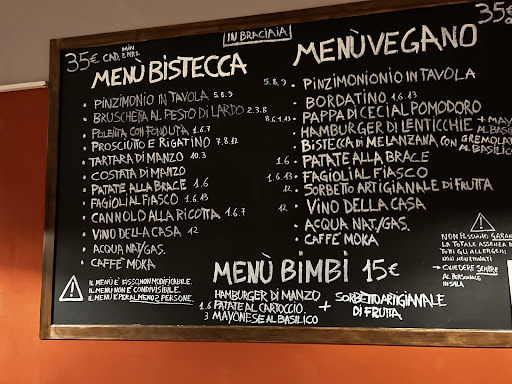 IN BRACIAIA
35€ CAD. MIN 2 PERS.
MENÙ BISTECCA
• PINZIMONIO IN TAVOLA 5.8.9
• BRUSCHETTA AL PESTO DI LARDO 2.3.8
• POLENTA CON FONDUTA 1.6.7
• PROSCIUTTO E RIGATINO 7.8.12
• TARTARA DI MANZO 10.3
• COSTATA DI MANZO
• PATATE ALLA BRACE 1.6
• FAGIOLI AL FIASCO 1.6.13
• CANNOLO ALLA RICOTTA 1.6.7
• VINO DELLA CASA 12
• ACQUA NAT/GAS.
• CAFFÈ MOKA
IL MENÙ È FISSO, NON MODIFICABILE.
IL MENÙ NON È CONDIVISIBILE.
IL MENÙ È PER ALMENO 2 PERSONE.
35€
MENÙ VEGANO
5.8.9 • PINZIMONIONIO IN TAVOLA
• BORDATINO 1.6.13
8.6.1.13 • PAPPA DI CECI AL POMODORO
• HAMBURGER DI LENTICCHIE + MAYO AL BASILICO
• BISTECCA DI MELANZANA CON GREMOLATA AL BASILICO
1.6 • PATATE ALLA BRACE
1.6.13 • FAGIOLI AL FIASCO
12 • SORBETTO ARTIGIANALE DI FRUTTA
12 • VINO DELLA CASA
• ACQUA NAT/GAS.
• CAFFÈ MOKA
NON POSSIAMO
LA TOTALE ASSENZA
TUTTI GLI ALLERGENI
NON MENZIONATI
→ CHIEDERE SEMPRE
AL PERSONALE
IN SALA
MENÙ BIMBI 15€
HAMBURGER DI MANZO
1.6 PATATE AL CARTOCCIO
3 MAYONESE AL BASILICO
+ SORBETTO ARTIGIANALE
DI FRUTTA